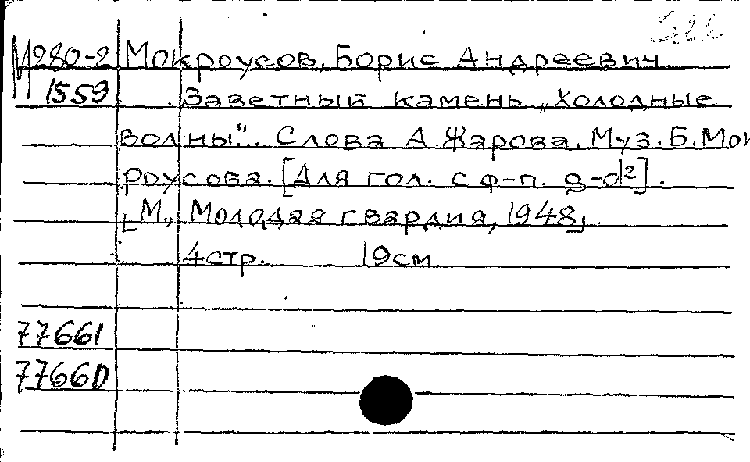 М280-2 Мокроусов, Борис Андреевич
1559 Заветный камень „Холодные
волны". Слова А Жарова. Муз. Б. Мок
роусова. [Для гол. с ф-п. g-d²].
[М., Молодая гвардия, 1948]
4стр. 19см
77661
7766D